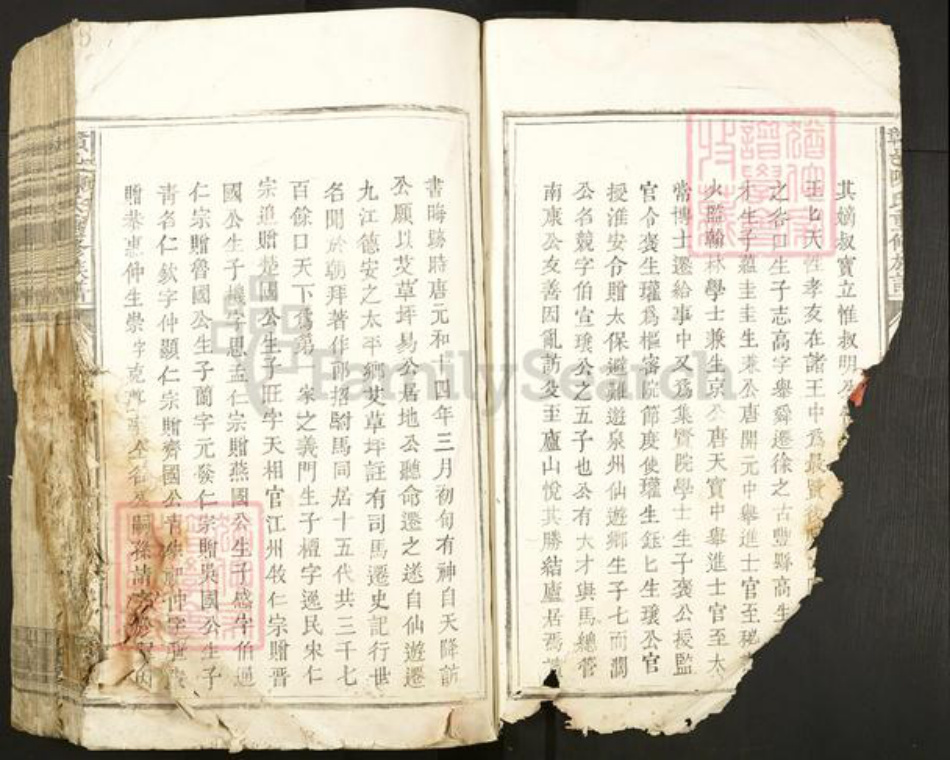 其嫡叔寶立惟叔明公
性孝友在諸王中爲最賢後
之名口生子志高字舉舜遷徐之古豐縣高生
才生子蘊圭圭生兼公唐開元中舉進士官至秘
火監翰林學士兼生京公唐天寶中舉進士官至太
常博士遷給事中又爲集賢院學士生子褒公授監
官令褒生瓘爲樞審院節度使瓘生鈺匕生瓌公官
授淮安令贈太保避難遊泉州仙遊鄉生子七而濶
公名競字伯宣瓌公之五子也公有大才與馬總菅
南康公友善因亂訪友至廬山悅其勝結廬居焉
書晦跡時唐元和十四年三月初旬有神自天降訪
公願以艾草坪易公居地公聽命遷之遂自仙遊遷
九江德安之太平鄉艾草坪註有司馬遷史記行世
名聞於朝拜著作郎招駙馬同居十五代共三千七
百餘口天下爲第一家之義門生子檀字遜民宋仁
宗追贈楚國公生子旺字天相官江州牧仁宗贈晉
國公生子機字思孟仁宗贈燕國公生子感字伯通
仁宗贈魯國公生子蘭字元發仁宗贈吳國公生子
青名仁欽字仲顯仁宗贈齊國公青生
贈恭惠仲生崇字克
FamilySearch